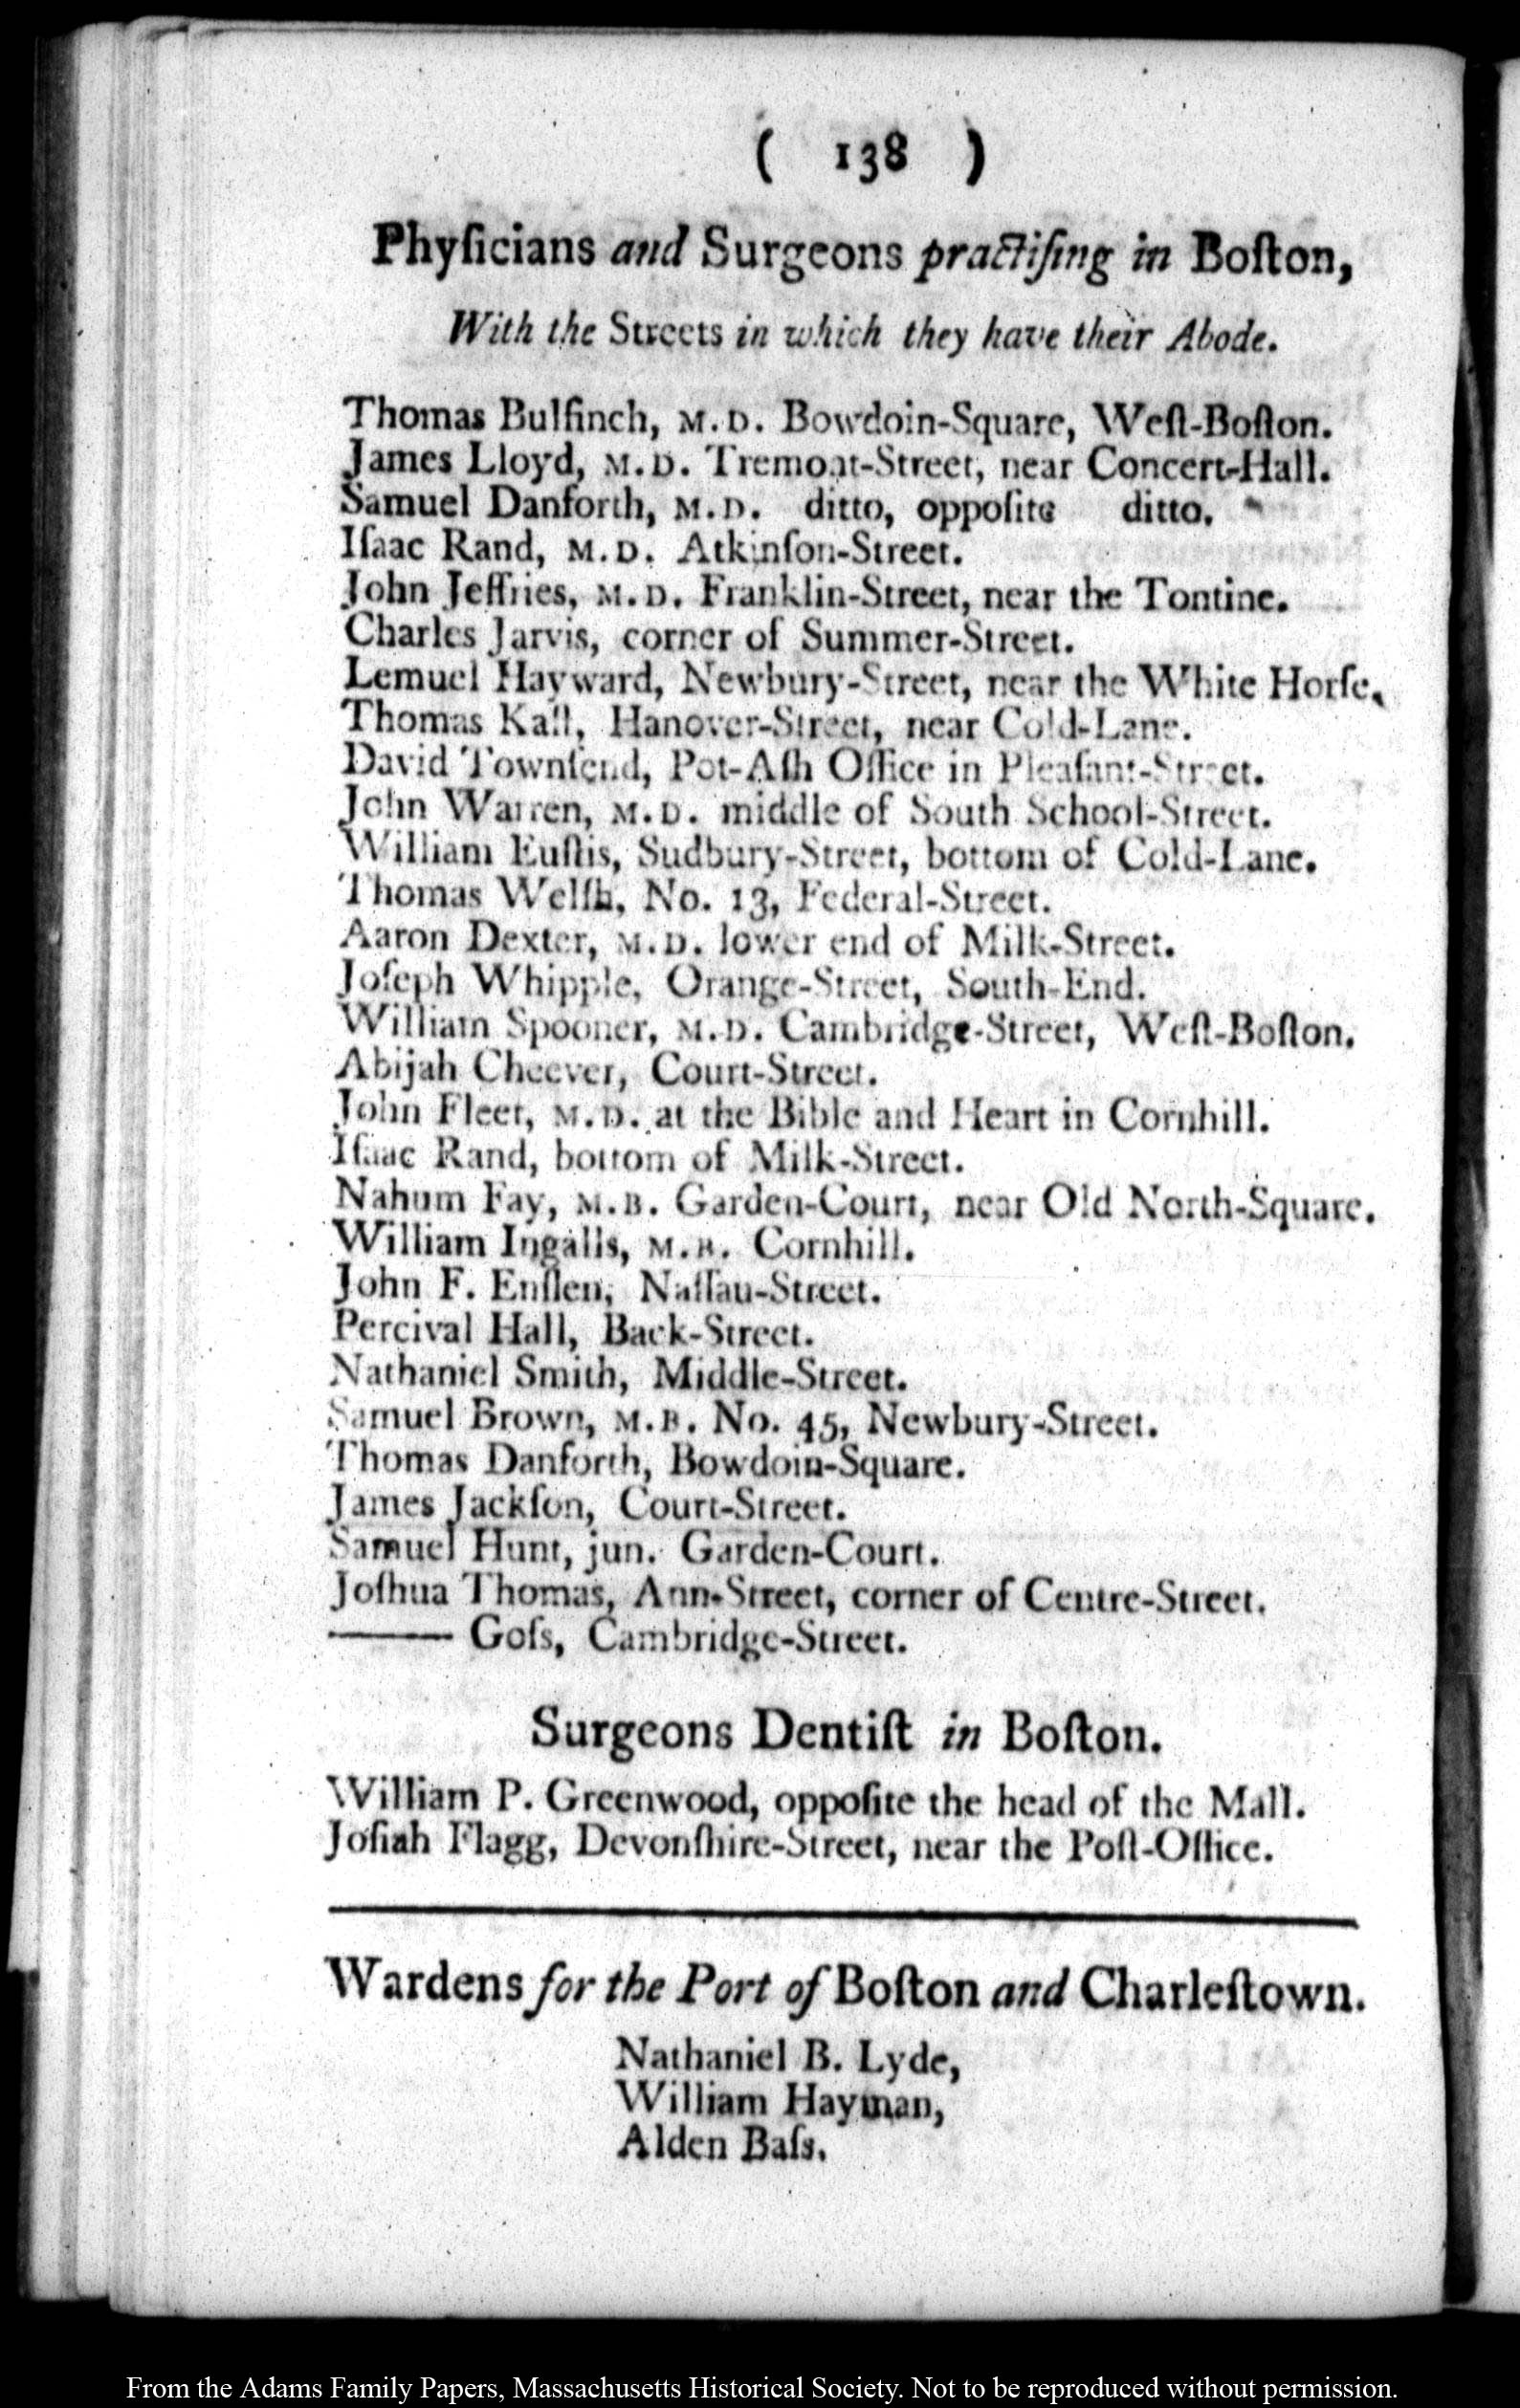 ( 138 )
Phyſicians and Surgeons practiſing in Boſton,
With the Streets in which they have their Abode.
Thomas Bulfinch, M.D. Bowdoin-Square, Weſt-Boſton.
James Lloyd, M.D. Tremont-Street, near Concert-Hall.
Samuel Danforth, M.D. ditto, oppoſite ditto.
Iſaac Rand, M.D. Atkinſon-Street.
John Jeffries, M.D. Franklin-Street, near the Tontine.
Charles Jarvis, corner of Summer-Street.
Lemuel Hayward, Newbury-Street, near the White Horſe.
Thomas Kaſt, Hanover-Street, near Cold-Lane.
David Townſend, Pot-Aſh Office in Pleaſant-Street.
John Warren, M.D. middle of South School-Street.
William Euſtis, Sudbury-Street, bottom of Cold-Lane.
Thomas Welſh, No. 13, Federal-Street.
Aaron Dexter, M.D. lower end of Milk-Street.
Joſeph Whipple, Orange-Street, South-End.
William Spooner, M.D. Cambridge-Street, Weſt-Boſton.
Abijah Cheever, Court-Street.
John Fleet, M.D. at the Bible and Heart in Cornhill.
Iſaac Rand, bottom of Milk-Street.
Nahum Fay, M.B. Garden-Court, near Old North-Square.
William Ingalls, M.B. Cornhill.
John F. Enſlen, Naſſau-Street.
Percival Hall, Back-Street.
Nathaniel Smith, Middle-Street.
Samuel Brown, M.B. No. 45, Newbury-Street.
Thomas Danforth, Bowdoin-Square.
James Jackſon, Court-Street.
Samuel Hunt, jun. Garden-Court.
Joſhua Thomas, Ann-Street, corner of Centre-Street.
——— Goſs, Cambridge-Street.
Surgeons Dentiſt in Boſton.
William P. Greenwood, oppoſite the head of the Mall.
Joſiah Flagg, Devonſhire-Street, near the Poſt-Office.
Wardens for the Port of Boſton and Charleſtown.
Nathaniel B. Lyde,
William Hayman,
Alden Baſs.
From the Adams Family Papers, Massachusetts Historical Society. Not to be reproduced without permission.